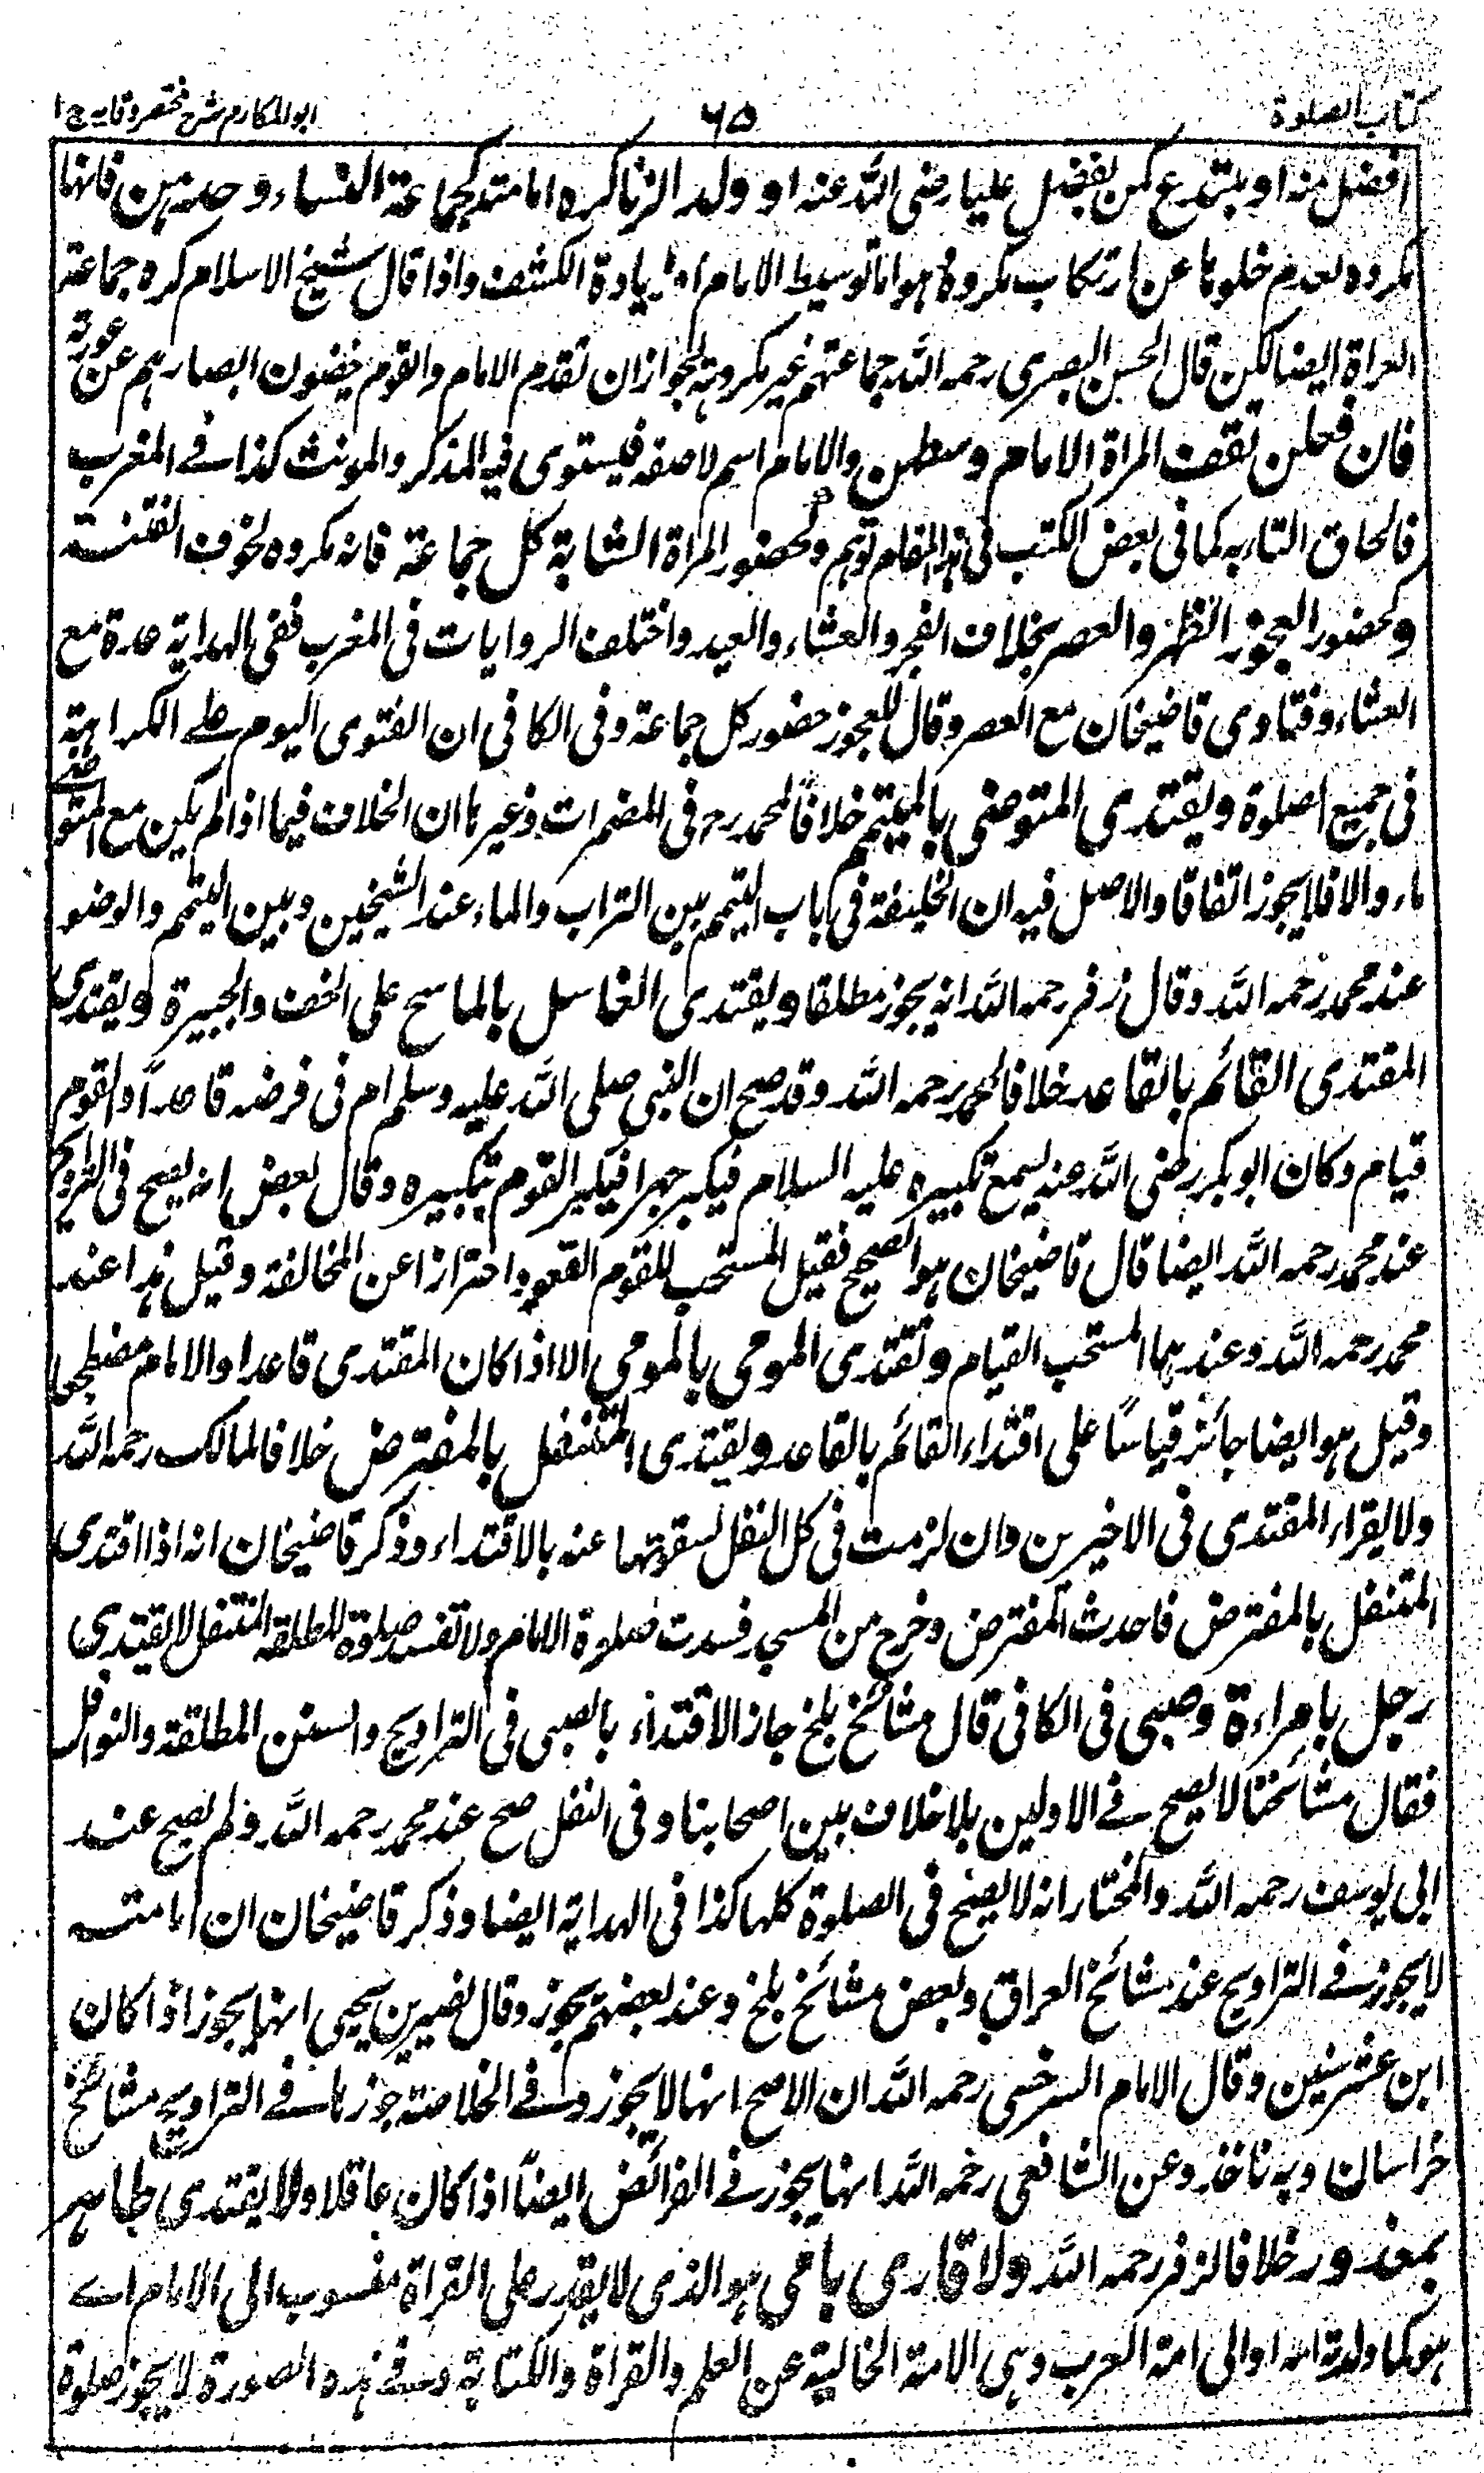 كتاب الصلوة
٦٥
ابو المكارم شرح مختصر وقايه ج ١
افضل منه او مبتدع كمن يفضل عليا رضى الله عنه او ولد الزنا كره امامته كجماعة النساء وحدهن فانها
مكروه لعدم خلوها عن ارتكاب مكروه هو اما توسيط الامام او زيادة الكشف واذا قال شيخ الاسلام كره جماعة
العراة ايضا لكن قال الحسن البصرى رحمه الله جماعتهم غير مكروهة لجواز ان تقدم الامام والقوم غضون ابصارهم عن عورته
فان فعلن تقف المراة الامام وسطهن والامام اسم لا صفة فيستوى فيه المذكر والمونث كذا فى المغرب
فالحاق التاء به كما فى بعض الكتب فى هذا المقام توهم وكحضور المراة الشابة كل جماعة فانه مكروه لخوف الفتنة
وكحضور العجوز الظهر والعصر بخلاف الفجر والعشاء والعيد واختلف الروايات فى المغرب ففى الهداية عده مع
العشاء وفتاوى قاضيخان مع العصر وقالا للعجوز حضور كل جماعة وفى الكافى ان الفتوى اليوم على الكراهة
فى جميع الصلوة ويقتدى المتوضى بالمتيمم خلافا لمحمد رح فى المضمرات وغيرها ان الخلاف فيما اذا لم يكن مع المتوضى
ماء والا فلا يجوز اتفاقا والاصل فيه ان الخليفة فى باب التيمم بين التراب والماء عند الشيخين وبين التيمم والوضو
عند محمد رحمه الله وقال زفر رحمه الله انه يجوز مطلقا ويقتدى الغاسل بالماسح على الخف والجبيرة ويقتدى
المقتدى القائم بالقاعد خلافا لمحمد رحمه الله وقد صح ان النبى صلى الله عليه وسلم ام فى فرضه قاعدا والقوم
قيام وكان ابو بكر رضى الله عنه يسمع تكبيره عليه السلام فيكبر جهرا فيكبر القوم بتكبيره وقال بعض انه يصح فى التراويح
عند محمد رحمه الله ايضا قال قاضيخان هو الصحيح فقيل المستحب للقوم القعود احترازا عن المخالفة وقيل هذا عند
محمد رحمه الله وعندهما المستحب القيام وتقتدى المومى بالمومى الا اذا كان المقتدى قاعدا والامام مضطجعا
وقيل هو ايضا جائز قياسا على اقتداء القائم بالقاعد ويقتدى المتنفل بالمفترض خلافا لمالك رحمه الله
ولا يقراء المقتدى فى الاخيرين وان لزمت فى كل النفل لسقوتها عنه بالاقتداء وذكر قاضيخان انه اذا اقتدى
المتنفل بالمفترض فاحدث المفترض وخرج من المسجد فسدت صلوة الامام ولا تفسد صلوة المتنفل لا يقتدى
رجل بامراءة وصبى فى الكافى قال مشائخ بلخ جاز الاقتداء بالصبى فى التراويح والسنن المطلقة والنوافل
فقال مشائخنا لا يصح فى الاولين بلا خلاف بين اصحابنا وفى النفل صح عند محمد رحمه الله ولم يصح عند
ابى يوسف رحمه الله والمختار انه لا يصح فى الصلوة كلها كذا فى الهداية ايضا وذكر قاضيخان ان امامته
لا يجوز فى التراويح عند مشائخ العراق وبعض مشائخ بلخ وعند بعضهم يجوز وقال نصير بن يحيى انها يجوز اذا كان
ابن عشر سنين وقال الامام السرخسى رحمه الله ان الاصح انها لا يجوز وفى الخلاصة جوزها فى التراويح مشائخ
خراسان وبه ناخذ وعن الشافعى رحمه الله انها يجوز فى الفرائض ايضا اذا كان عاقلا ولا يقتدى طاهر
بمعذور خلافا لزفر رحمه الله ولا قارى بامى هو الذى لا يقدر على القراة منسوب الى الامام اے
هو كما ولدته امه او الى امة العرب وهى الامة الخالية عن العلم والقراة والكتابة وفى هذه الصورة لا يجوز صلوة